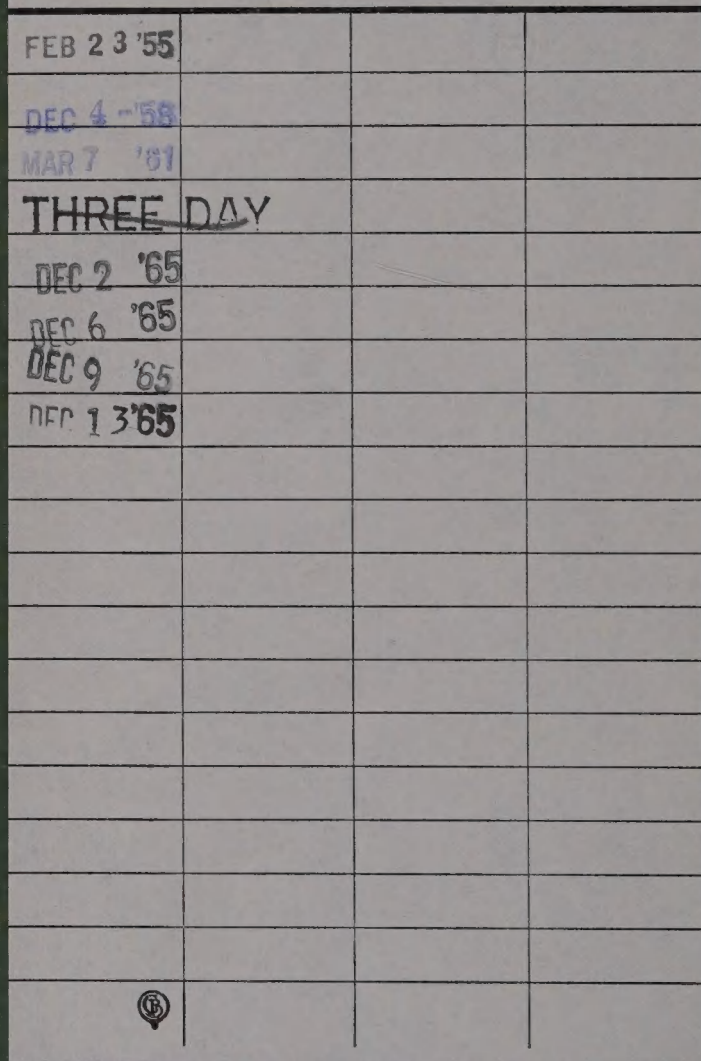 FEB 23 '55
DEC 4 - '58
MAR 7 '61
THREE DAY
DEC 2 '65
DEC 6 '65
DEC 9 '65
DEC 13 '65